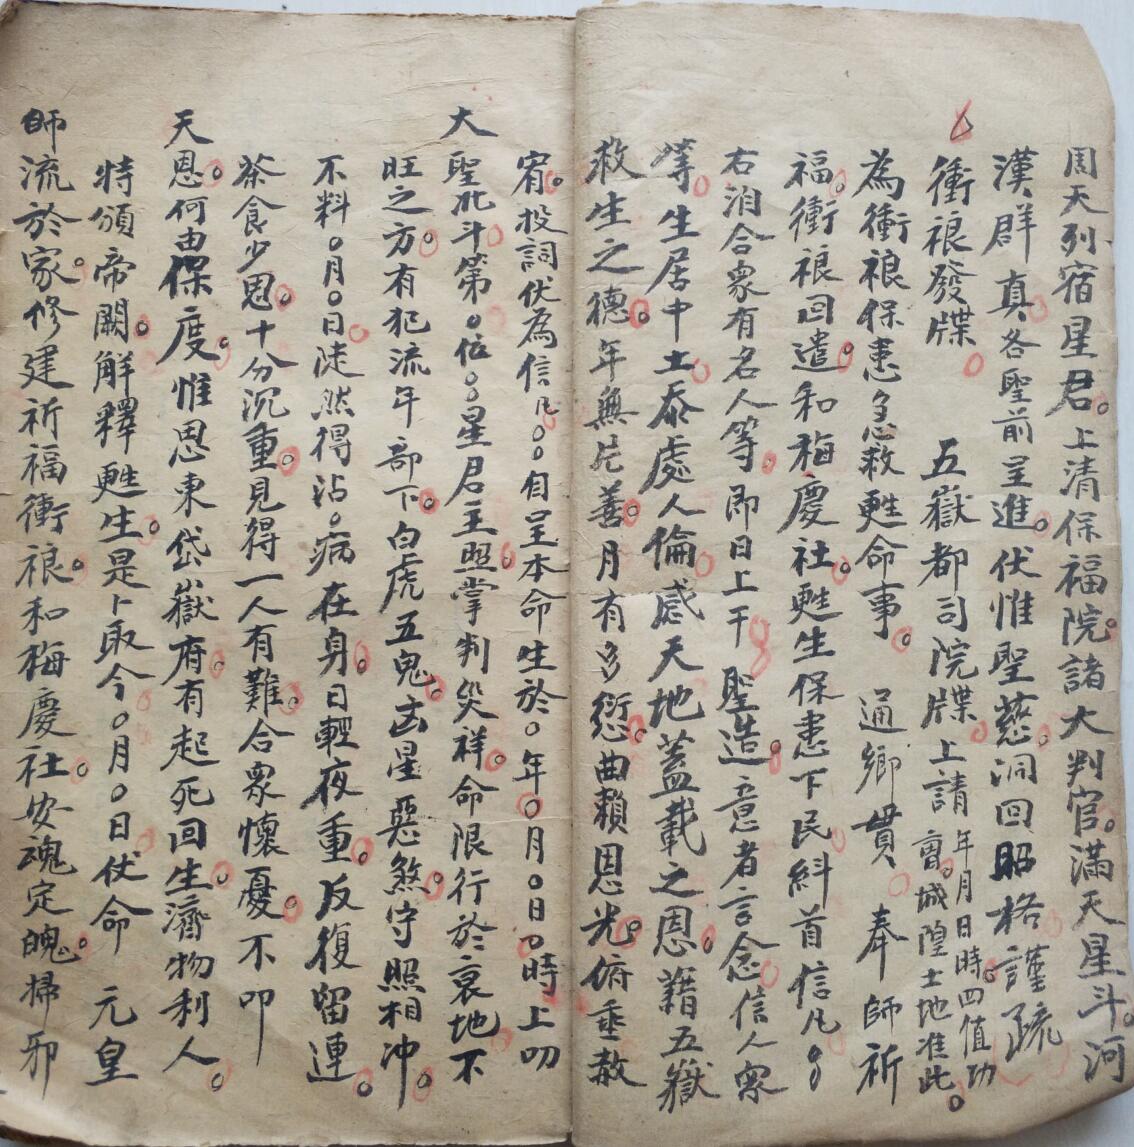 周天列宿星君。上清保福院。諸大判官。滿天星斗。河
漢群 真各聖前呈進。伏惟聖慈。洞回昭格 謹疏
衝裉發牒 五嶽都司院牒。上請 年月日時。四值功曹。城隍土地准此。
為衝裉保患急救甦命事。 通鄉貫 奉 師祈
福。衝裉回遣。和梅慶社。甦生保患下民糾首信凡〇〇
右洎合眾有名人等。即日上干 聖造。意者言念信人眾
等。生居中土。忝處人倫。感天地蓋載之恩。藉五嶽
救生之德。年無片善。月有多愆。曲賴恩光。俯垂赦
宥。投詞伏為信凡〇〇自呈本命生於〇年〇月〇日〇時上叨
大聖北斗第〇位〇星君主照。掌判災祥。命限行於衰地。不
旺之方。有犯流年部下。白虎五鬼。凶星惡煞。守照相冲。
不料〇月〇日。陡然得沾。病在身。日輕夜重。反復留連。
茶食少思。十分沉重。見得一人有難。合眾懷憂。不叩
天恩。何由保度。惟思東岱嶽府。有起死回生。濟物利人。
特頒帝闕。解釋甦生。是卜取今〇月〇日伏命 元皇
師流於家。修建祈福衝裉。和梅慶社。安魂定魄。掃邪